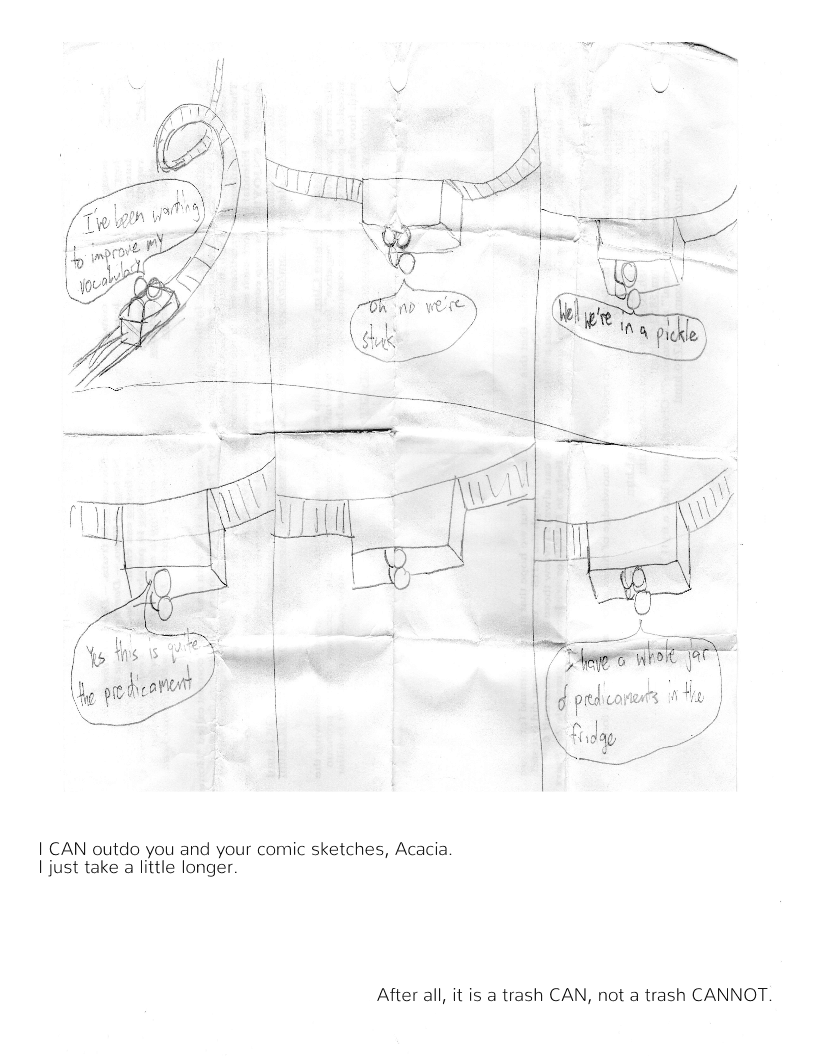 I've been wanting
to improve my
vocabulary
Oh no we're
stuk
Well we're in a pickle
Yes this is quite
the predicament
I have a whole jar
of predicaments in the
fridge
I CAN outdo you and your comic sketches, Acacia.
I just take a little longer.
After all, it is a trash CAN, not a trash CANNOT.